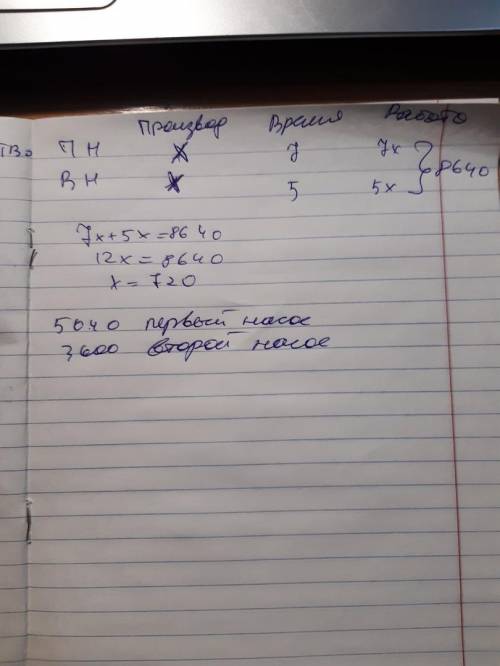 Произвд Время Работа
ПН х 7 7х
ВН х 5 5х
8640
7х+5х=8640
12х=8640
х=720
5040 первый насос
3600 второй насос